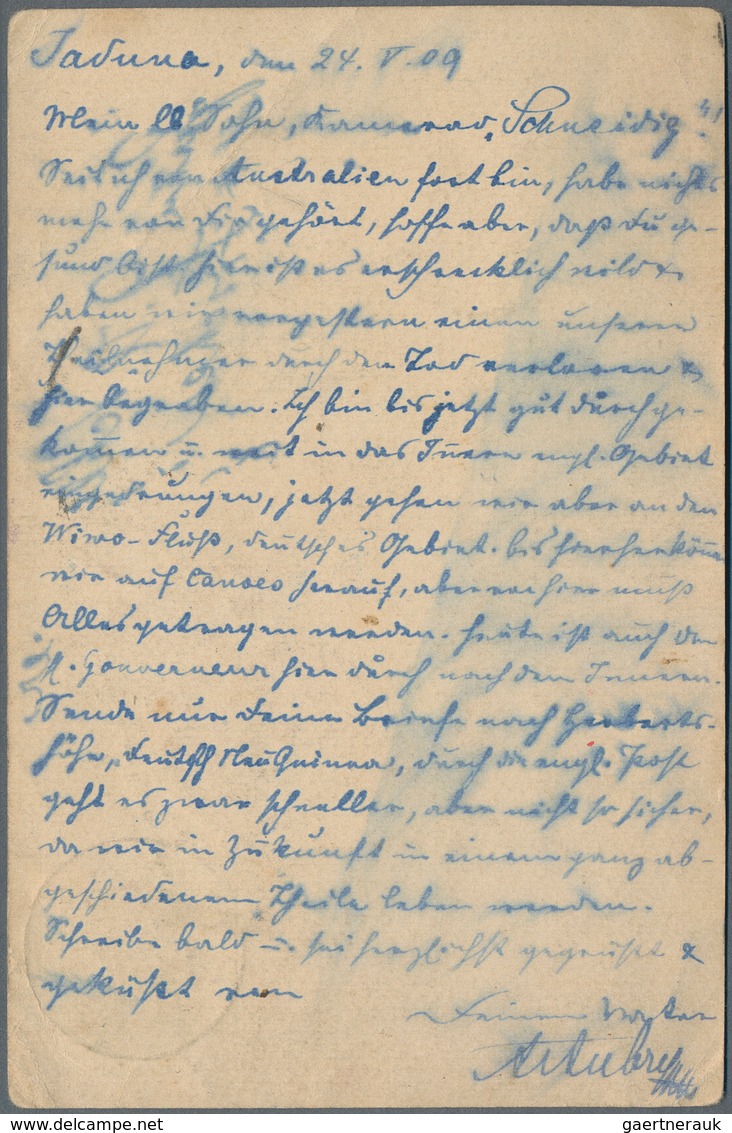 Taduna, den 24. V. 09
Mein lb Sohn, Kamerad „Schneidig“!
Seit ich von Australien fort bin, habe nichts
mehr von Dir gehört, hoffe aber, daß Du ge-
sund bist. Hier ist es erschrecklich wild &
haben wir vorgestern einen unserer
Theilnehmer durch den Tod verloren &
hier begraben. Ich bin bis jetzt gut durchge-
kommen u. weit in das Innere engl. Gebiet
eingedrungen, jetzt gehen wir aber an den
Wiwo-Fluß, deutsches Gebiet. bis hierher können
wir auf Canoes herauf, aber von hier muß
Alles getragen werden. Heute ist auch der
Gouverneur hier durch nach dem Innern.
Sende nur Deine Briefe nach Herberts-
höhe, Deutsch Neu Guinea, durch die engl. Post
geht es zwar schneller, aber nicht so sicher,
da wir in Zukunft in einem ganz ab-
geschiedenen Theile leben werden.
Schreibe bald u. sei herzlichst gegrüßt &
geküßt von
Deinem Vater
gaertnerauk